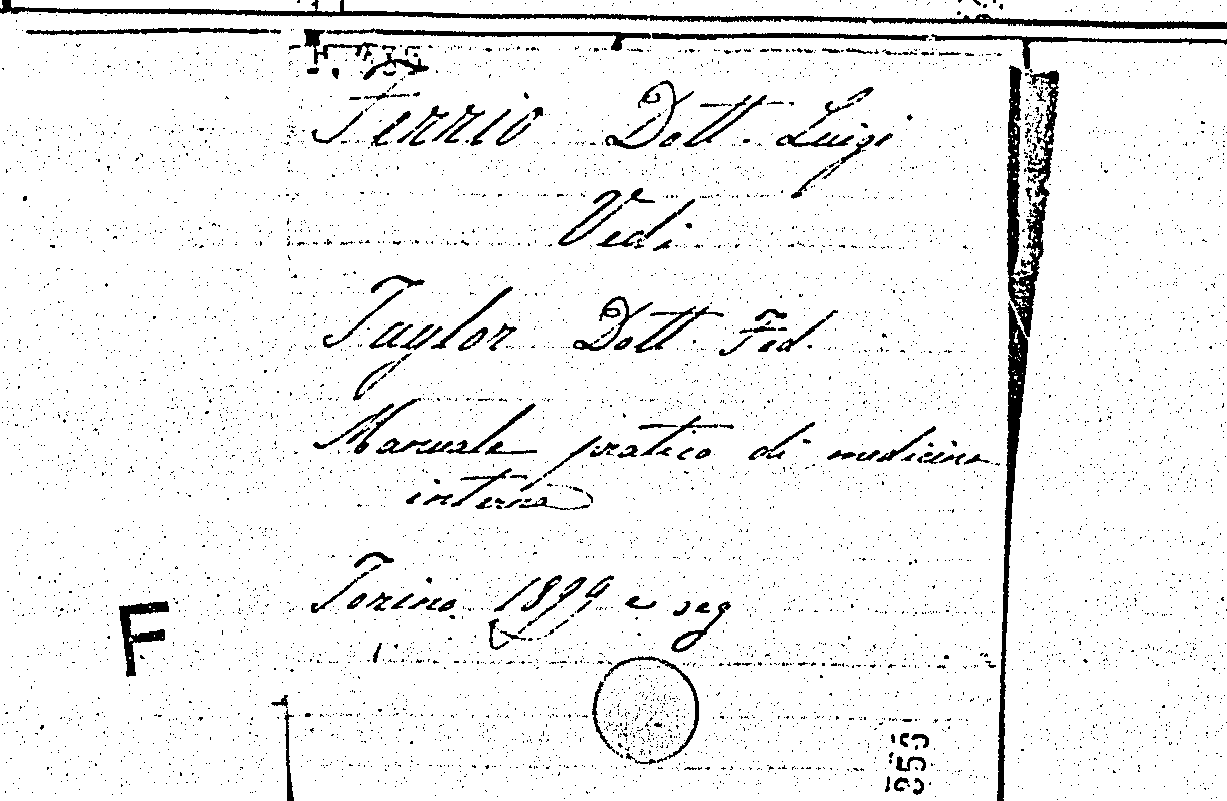 Ferrio Dott. Luigi
Vedi
Taylor Dott. Fed.
Manuale pratico di medicina
interna
Torino 1899 e seg
F